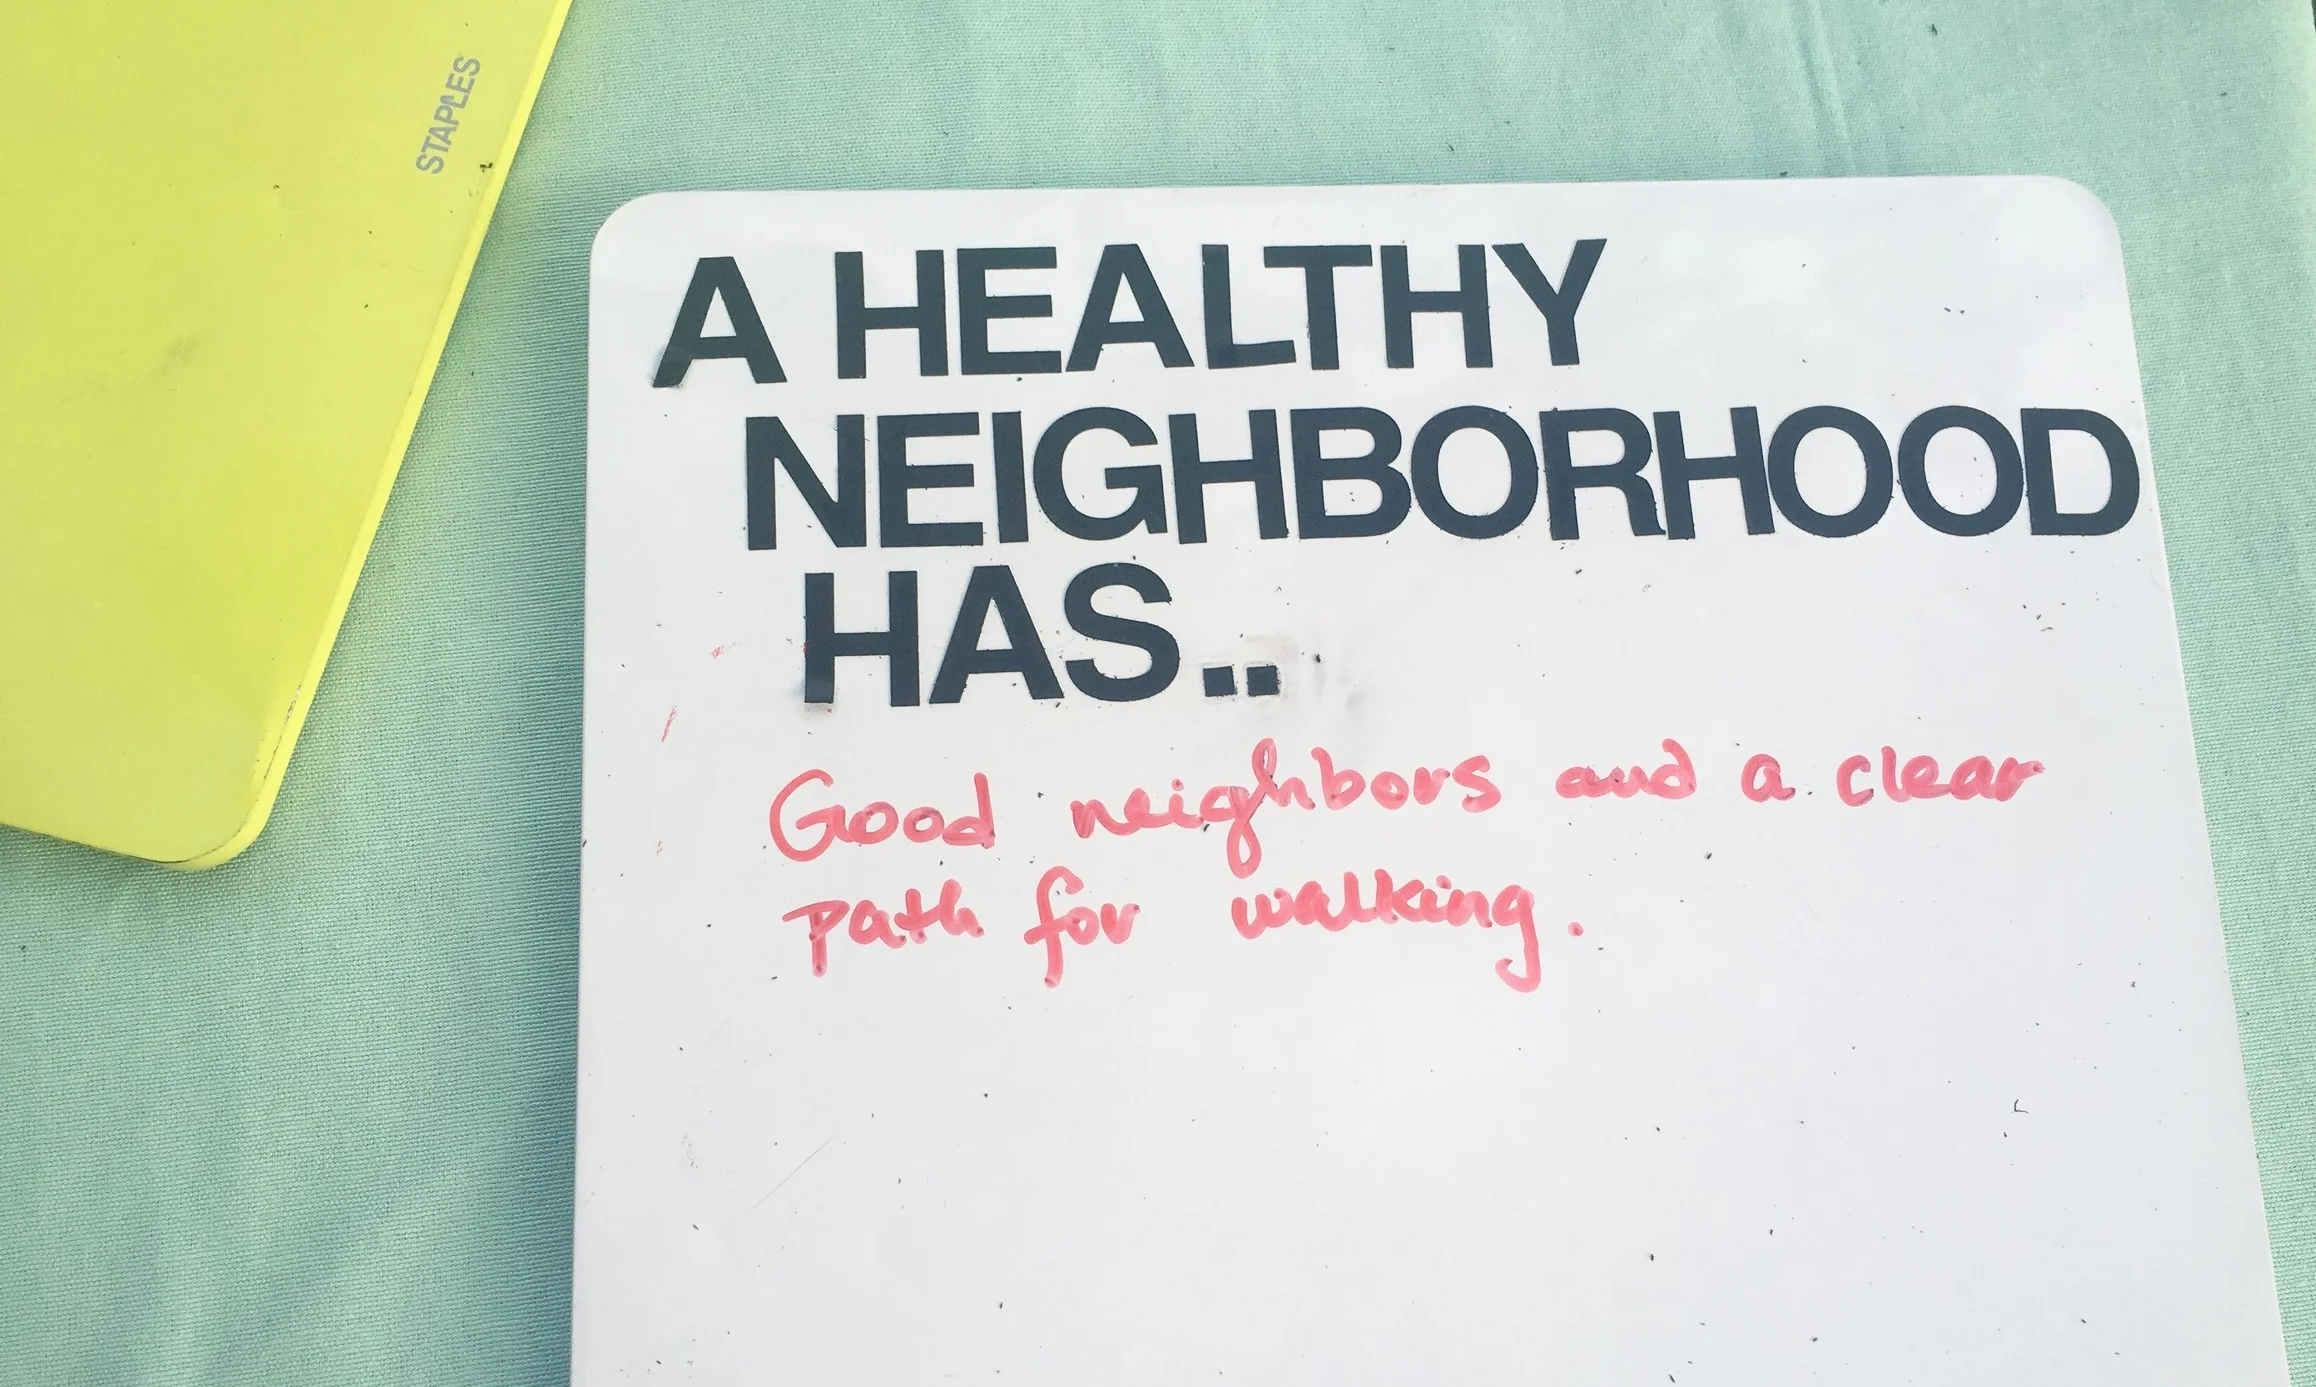 STAPLES
A HEALTHY
NEIGHBORHOOD
HAS..
Good neighbors and a clear
path for walking.